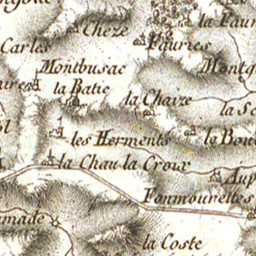 Cheze
la Faur
Carles
Fauries
Montbusac
Montg
la Batie
la Chaize
la Se
les Herments
le Bou
la Chau
la Croix
Aup
Fonmourettes
la Coste